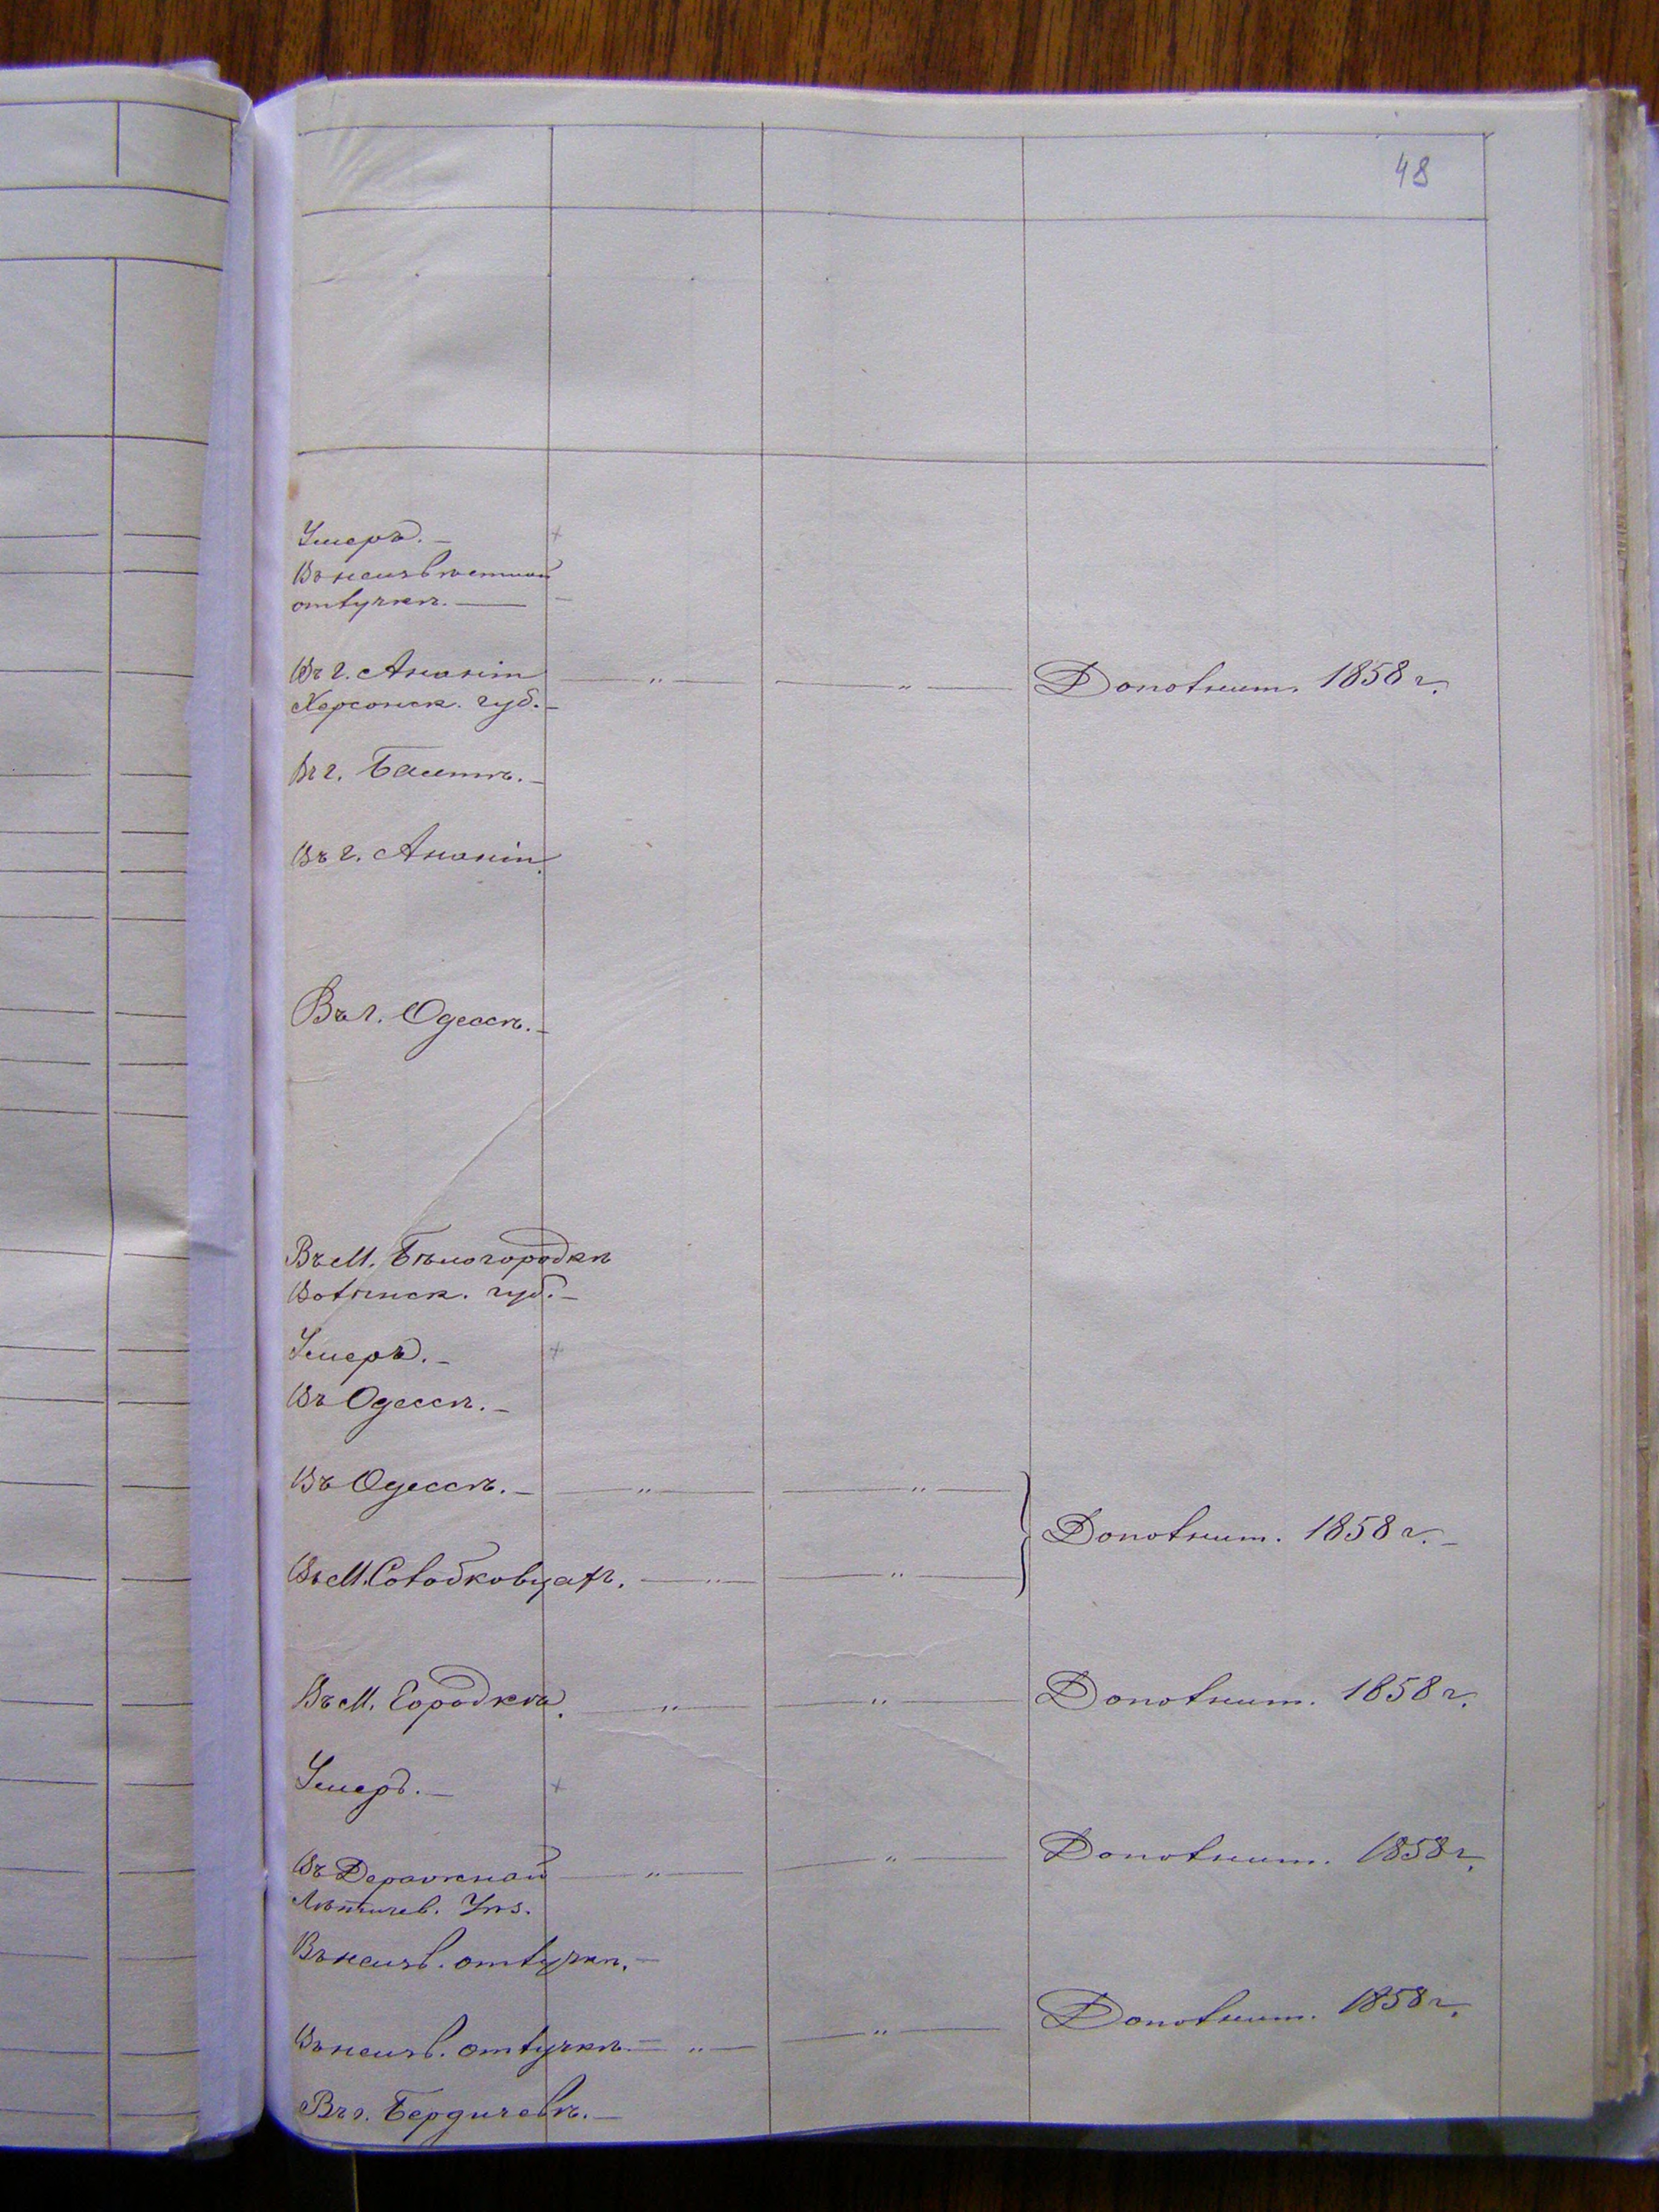 48
Умеръ. —
Въ неизвѣстной
отлучкѣ. —
Въ г. Ананіи
Херсонск. губ. —
Дополнит. 1858 г.
Въ г. Балтѣ. —
Въ г. Ананіи.
Въ г. Одессѣ. —
Въ М. Бѣлогородкѣ
Волынск. губ. —
Умеръ. —
Въ Одессѣ. —
Въ Одессѣ. —
Дополнит. 1858 г. —
Въ М. Солобковцахъ.
Въ М. Городкѣ.
Дополнит. 1858 г.
Умеръ. —
Въ Деражной
Дополнит. 1858 г.
Лѣтичев. Уѣз.
Въ неизв. отлучкѣ. —
Въ неизв. отлучкѣ —
Дополнит. 1858 г.
Въ г. Бердичевѣ. —